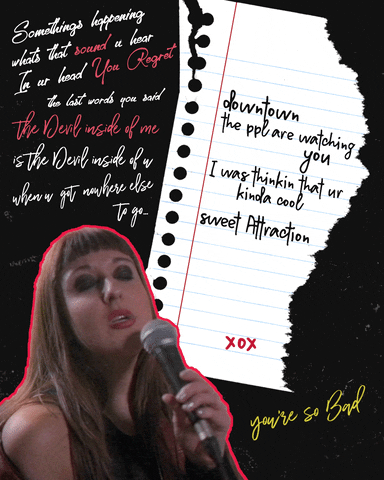 Somethings happening
whats that sound u hear
In ur head You Regret
the last words you said
the Devil inside of me
is the Devil inside of u
when u got nowhere else
to go...
downtown
the ppl are watching
you
I was thinkin that ur
kinda cool
sweet Attraction
xox
you're so Bad